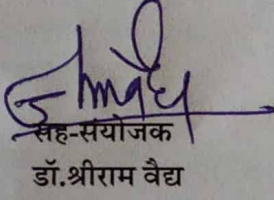 सह-संयोजक
डॉ.श्रीराम वैद्य